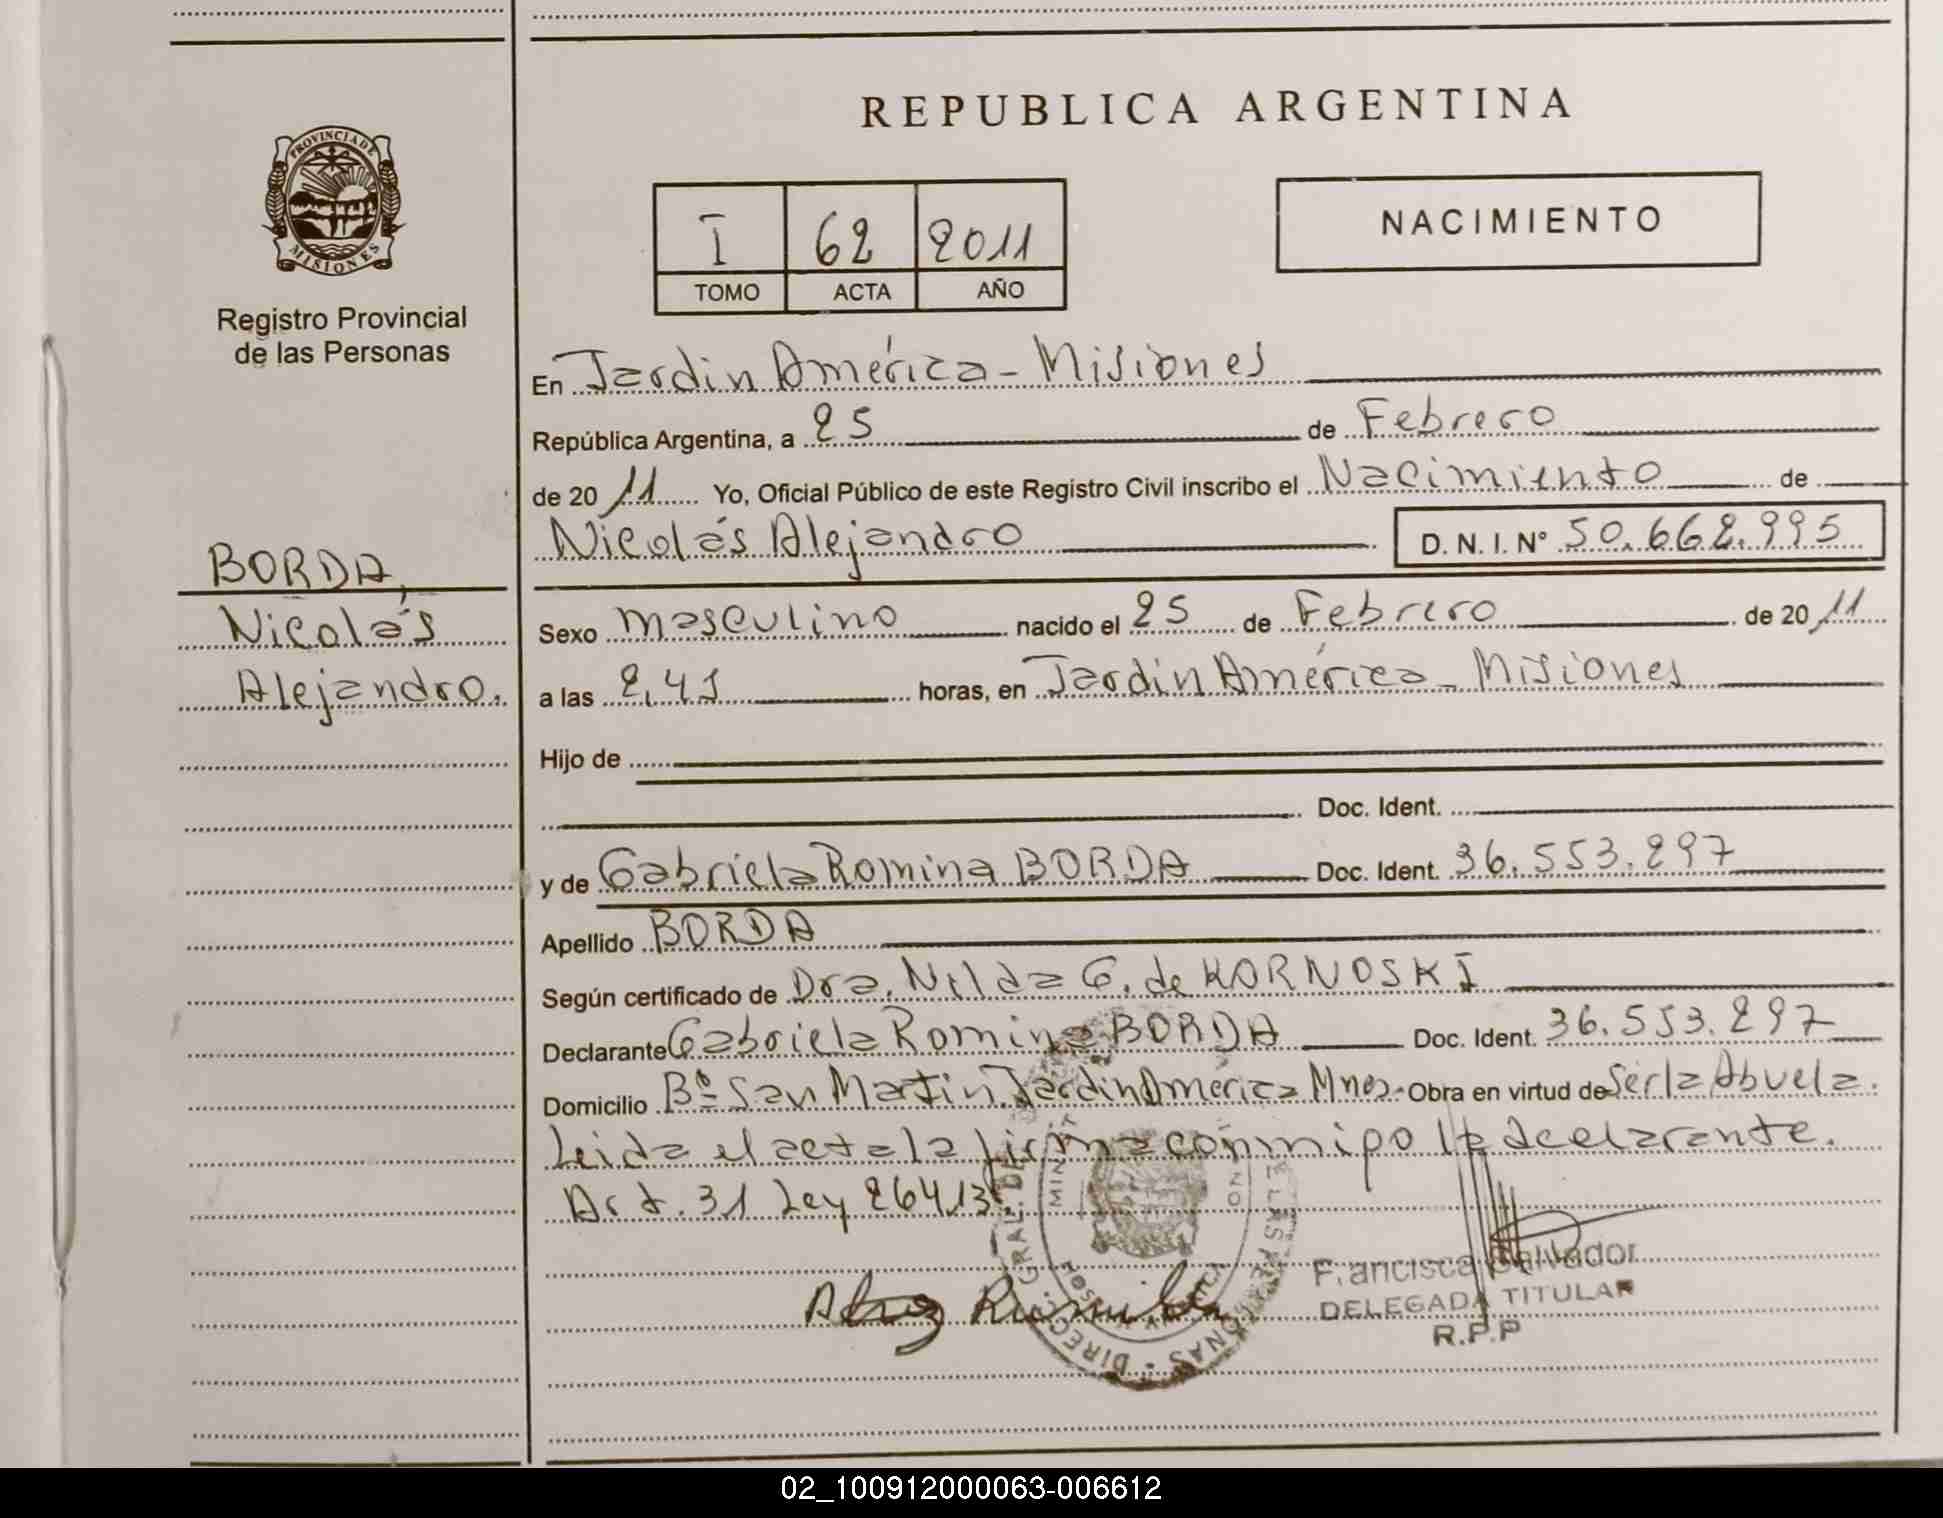 REPUBLICA ARGENTINA
PROVINCIA DE
MISIONES
Registro Provincial
de las Personas
I 62 2011
TOMO ACTA AÑO
NACIMIENTO
En Jardin América - Misiones
República Argentina, a 25 de Febrero
de 20 11 Yo, Oficial Público de este Registro Civil inscribo el Nacimiento de
Nicolás Alejandro D. N. I. Nº 50.662.995
BORDA,
Nicolás
Alejandro.
Sexo masculino nacido el 25 de Febrero de 20 11
a las 2,41 horas, en Jardin América - Misiones
Hijo de
Doc. Ident.
y de Gabriela Romina BORDA Doc. Ident. 36.553.297
Apellido BORDA
Según certificado de Dra. Nilda G. de KORNOSKI
Declarante Gabriela Romina BORDA Doc. Ident. 36.553.297
Domicilio Bº San Martin Jardin América Mnes - Obra en virtud de Ser la Abuela.
Leida el acta la firma conmigo la declarante.
Art. 31 Ley 26413
Francisca Salvador
DELEGADA TITULAR
R.P.P
02_100912000063-006612